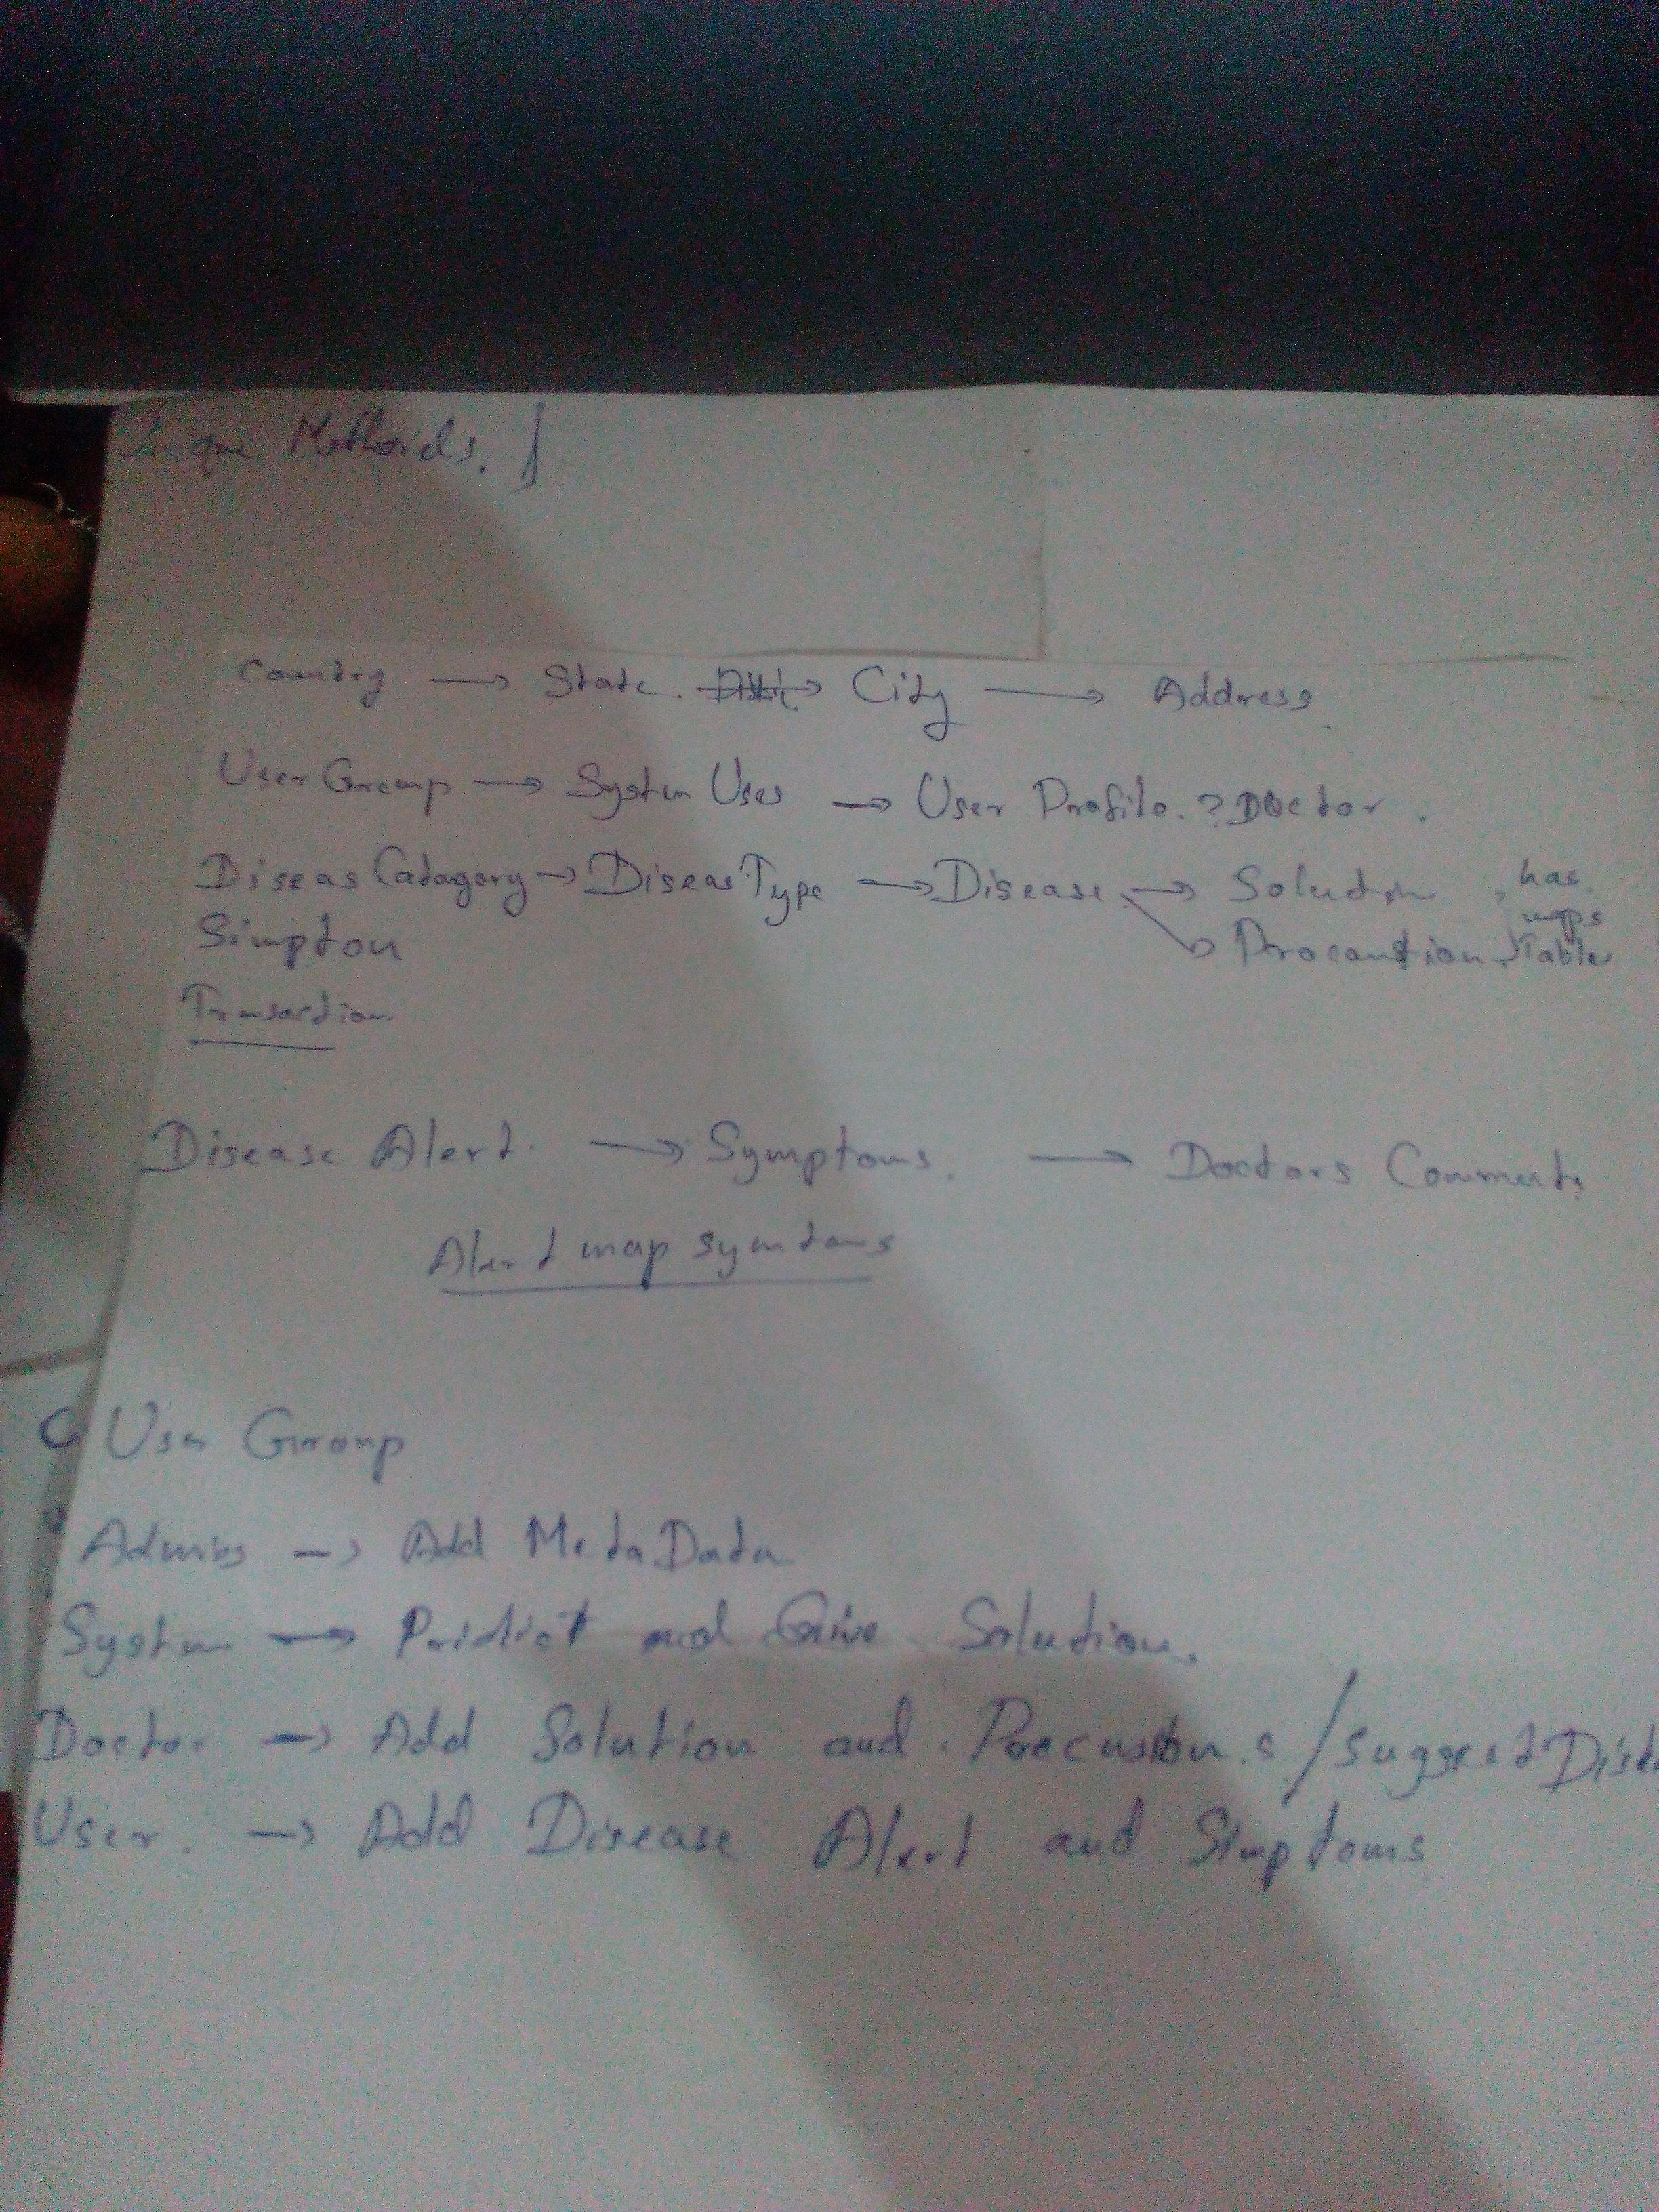 Unique Methods. }
Country → State. → City → Address
User Group → System User → User Profile. ? Doctor.
Diseas Catagory → Diseas Type → Disease → Solution, has
maps
Simpton → Precaution. Table
Transaction.
Disease Alert. → Symptoms. → Doctors Comments
Alert map symtoms
User Group
Admins → Add Meta Data
System → Pridict and Give Solution.
Doctor → Add Solution and Precusion.s / Suggest
User. → Add Disease Alert and Simptoms